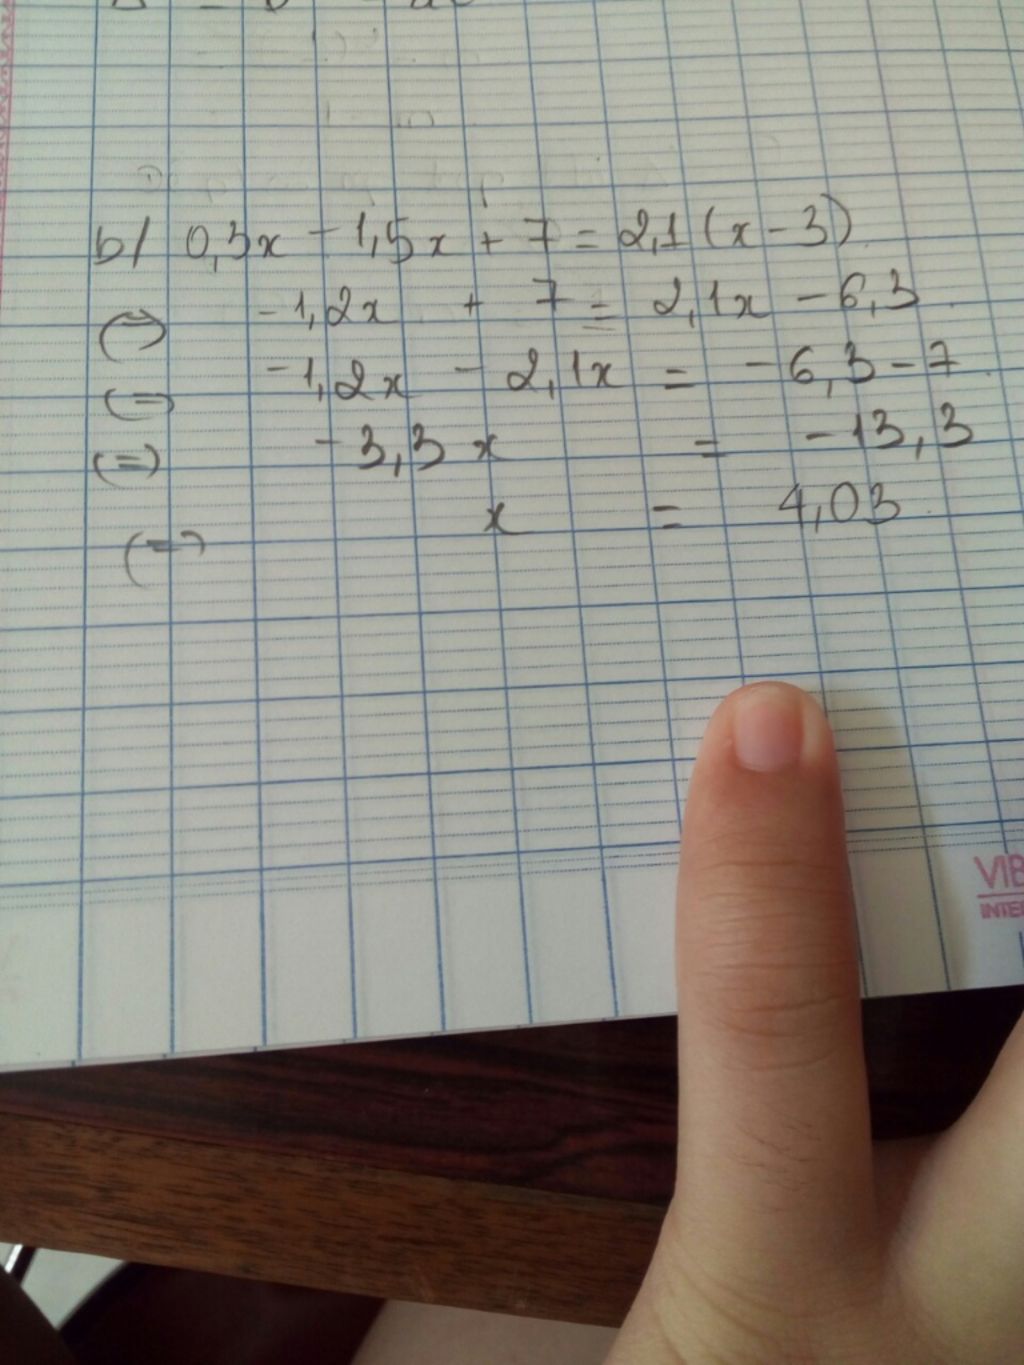 b/ 0,3x - 1,5x + 7 = 2,1 (x - 3)
(=) -1,2x + 7 = 2,1x - 6,3
(=) -1,2x - 2,1x = -6,3 - 7
(=) -3,3x = -13,3
(=) x = 4,03
VIB
INTER